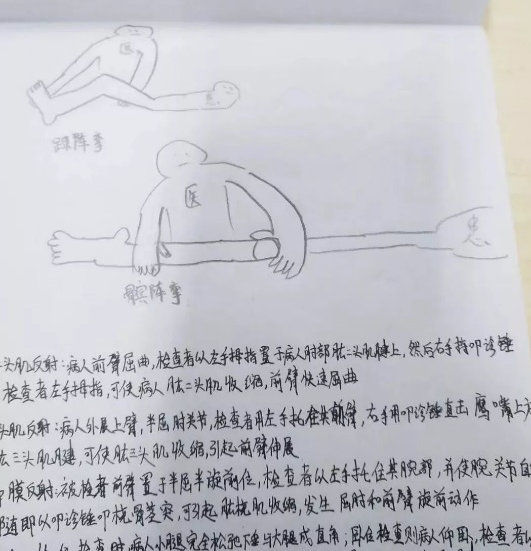 医
患
踝阵挛
医
患
髌阵挛
头肌反射:病人前臂屈曲,检查者以左手拇指置于病人肘部肱二头肌腱上,然后右手持叩诊锤
检查者左手拇指,可使病人肱二头肌收缩,前臂快速屈曲
头肌反射:病人外展上臂,半屈肘关节,检查者用左手托住其前臂,右手用叩诊锤直击鹰嘴上方
肱三头肌腱,可使肱三头肌收缩,引起前臂伸展
膜反射:被检者前臂置于半屈半旋前位,检查者以左手托住其腕部,并使腕关节自
随即以叩诊锤叩桡骨茎突,可引起肱桡肌收缩,发生屈肘和前臂旋前动作
检查时病人小腿完全松弛下垂与大腿成直角;卧位检查则病人仰卧,检查者